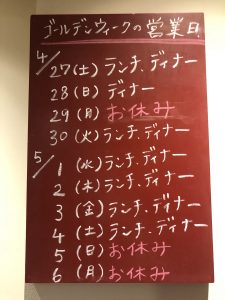 ゴールデンウィークの営業日
4/27(土)ランチ、ディナー
28(日)ディナー
29(月)お休み
30(火)ランチ、ディナー
5/1(水)ランチ、ディナー
2(木)ランチ、ディナー
3(金)ランチ、ディナー
4(土)ランチ、ディナー
5(日)お休み
6(月)お休み